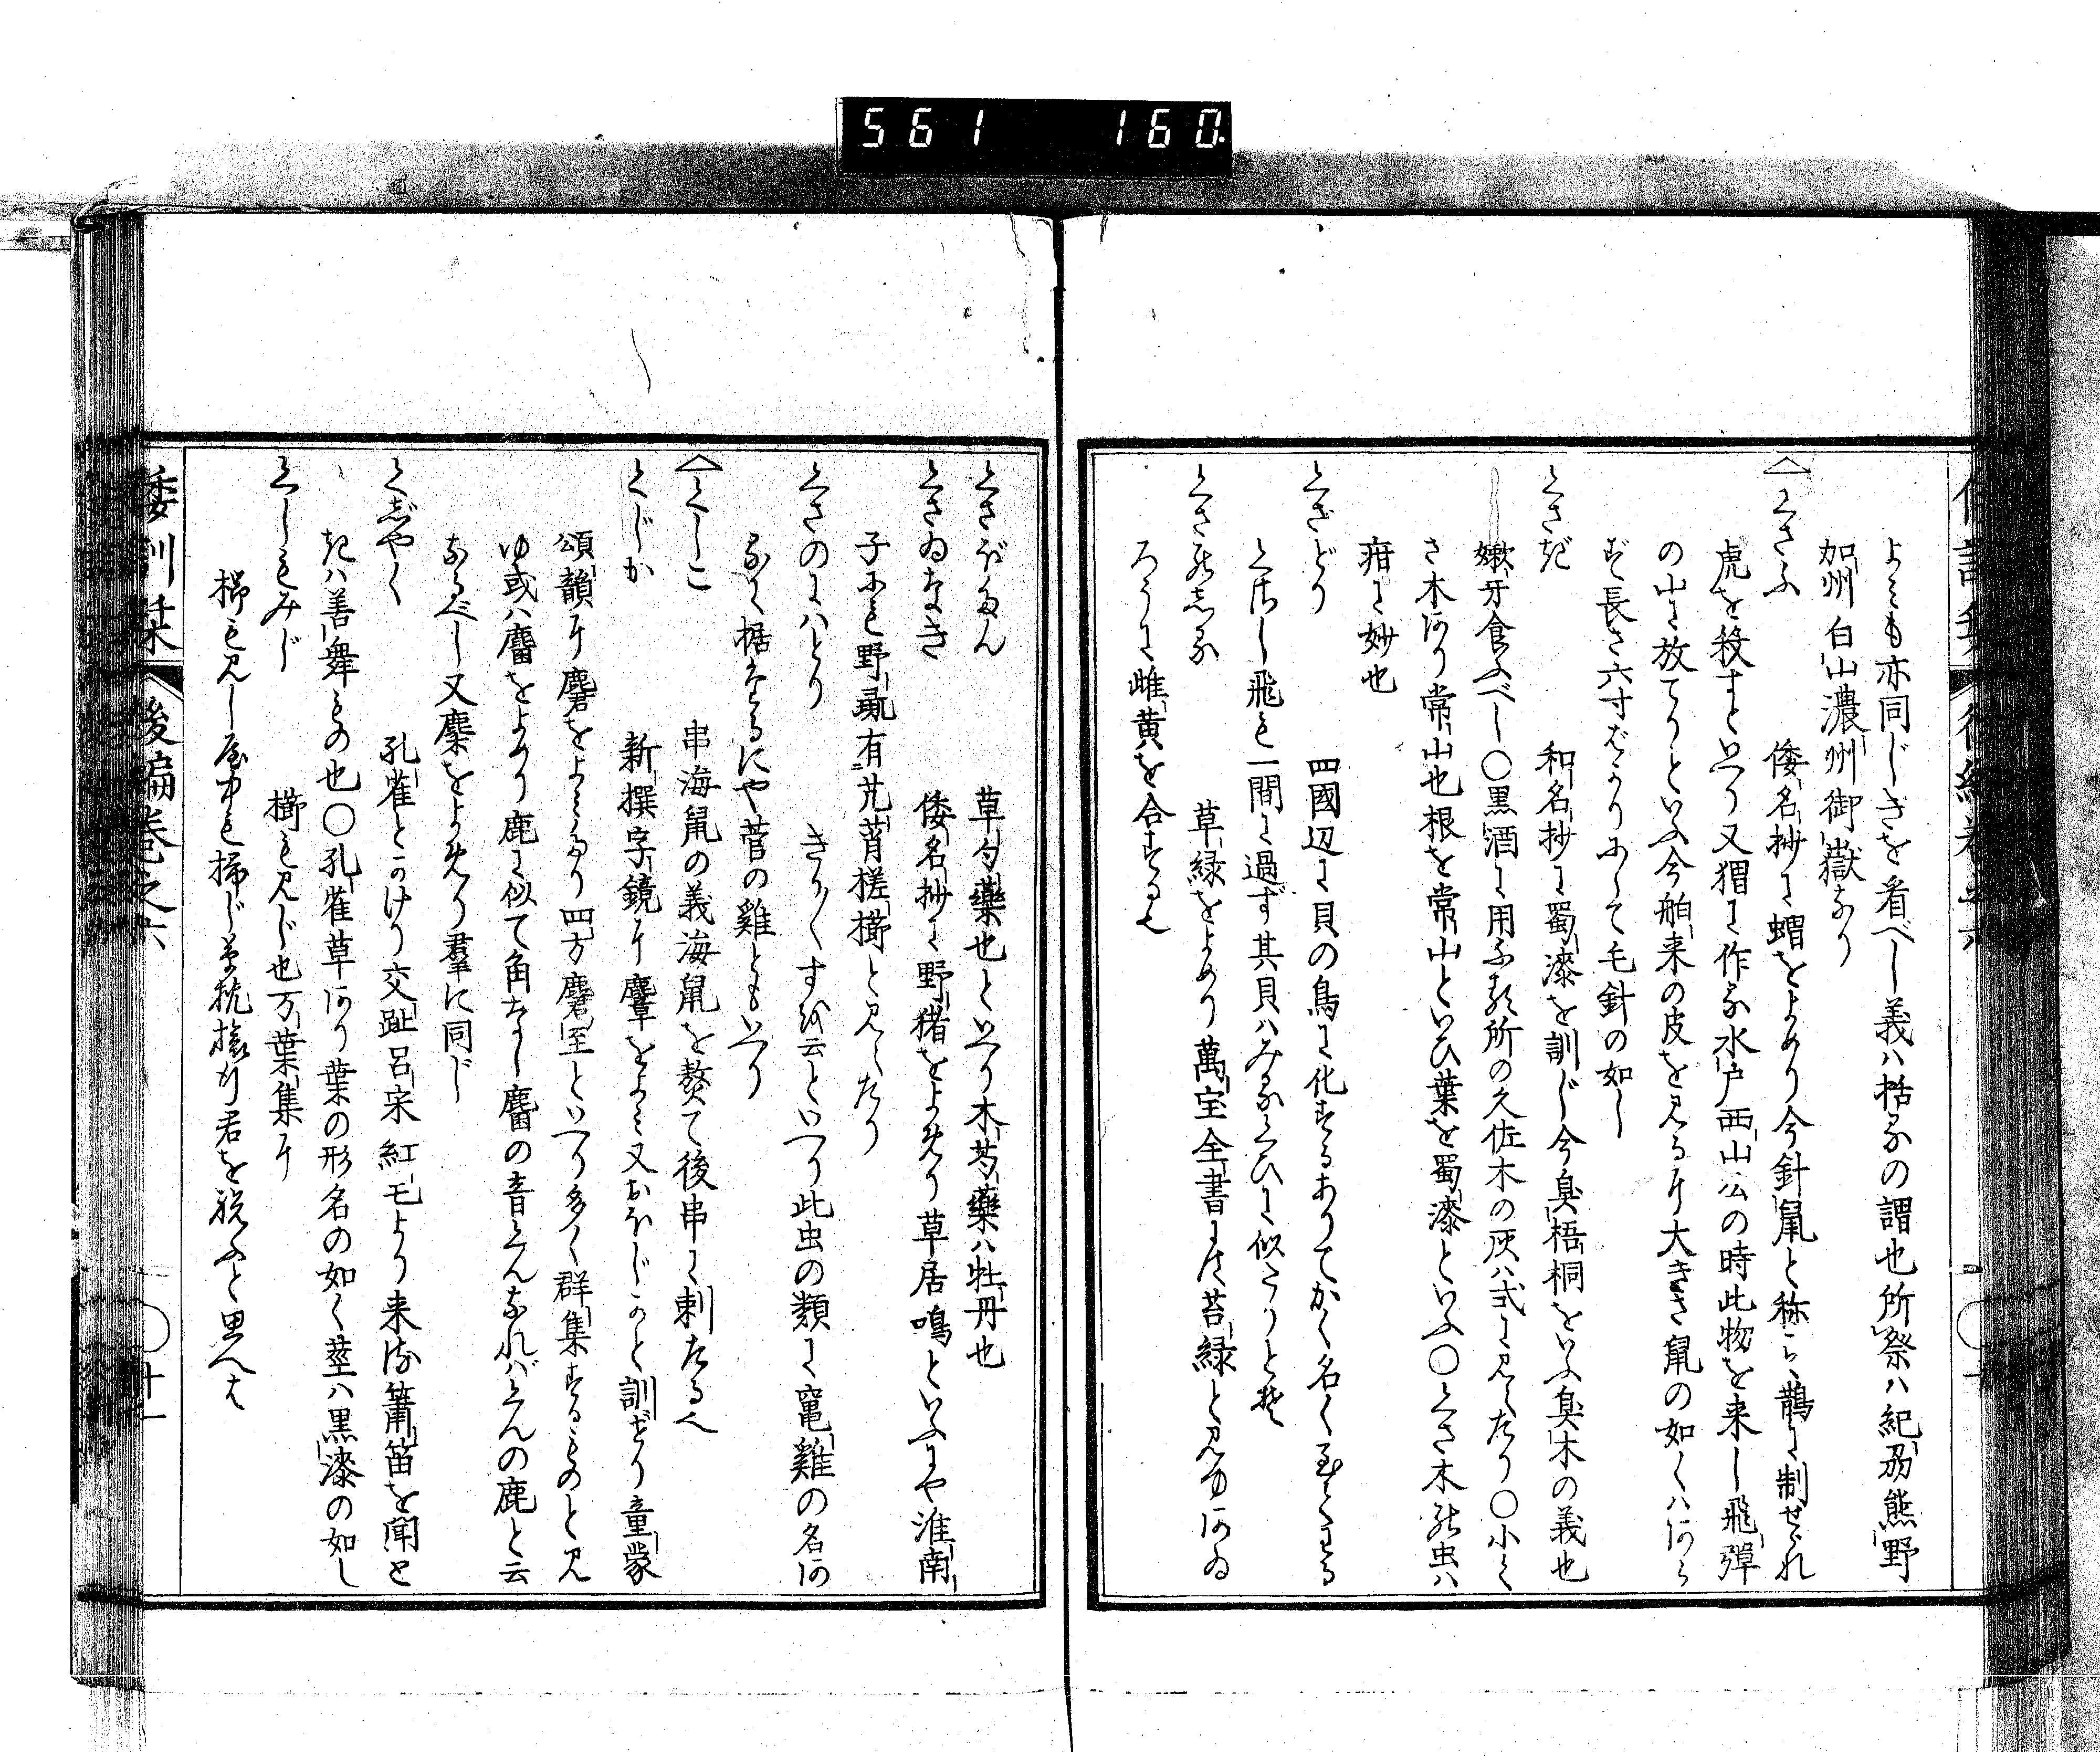 561 160
よみも亦同じしぎを看べし義ハ枯るの謂也所祭ハ紀刕熊野
加州白山濃州御嶽なり
くさふ 倭名抄に蝟をよめり今針鼠と称ら鵲に制せられ
虎を殺すといへり又猬に作る水戸西山公の時此物を来し飛彈
の山に放てりといふ今舶来の皮を見るに大きさ鼠の如くハあら
ず長さ六寸ばかりみして毛針の如し
くさぎ 和名抄に蜀漆を訓じ今臭梧桐をいふ臭木の義也
嫩牙食ふべし○黒酒に用ふる所の久佐木の灰ハ式に見えたり○小く
さ木あり常山也根を常山といひ葉を蜀漆といふ○くさ木の虫ハ
疳に妙也
くさどり 四國辺に貝の鳥に化するありてかく名く
くはし飛も一間に過ず其貝ハみるくひに似たりとぞ
くさのしる 草緑をよめり萬宝全書には苔緑と見ゆあゐ
ろうに雌黄を合する也
くさぼたん 草勺藥也といへり木芍藥ハ牡丹也
くさゐなき 倭名抄に野猪をよめり草居鳴といふにや淮南
子にも野彘有艽莦槎櫛と見えたり
くさのにハとり きりぎりすを云といへり此虫の類に竃雞の名あ
るく椐なるにや菅の雞ともいへり
くしこ 串海鼠の義海鼠を熬て後串に刺たるべ
くじか 新撰字鏡に麞をよみ又おほじかと訓ぜり童蒙
頌韻に麏をよみたり四方麏至といへり多く群集するものと見
ゆ或ハ麕をよめり鹿に似て角なし麕の音くんなれバくんの鹿と云
なるべし又麇をよめり羣に同じ
くじやく 孔雀とかけり交趾呂宋紅毛より来る簫笛を聞と
きハ善舞もの也○孔雀草あり葉の形名の如く茎ハ黒漆の如し
くしもみじ 櫛も見じ也万葉集に
櫛も見し屋中も掃じ草枕旅行君を祝ふと思へば
倭訓栞 後編巻之六 ○ 十一